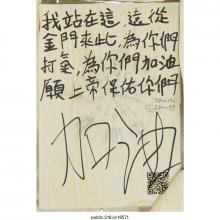 我站在這，遠從
金門來此，為你們
打氣，為你們加油
願上帝保佑你們
加油
public.318.io/18571